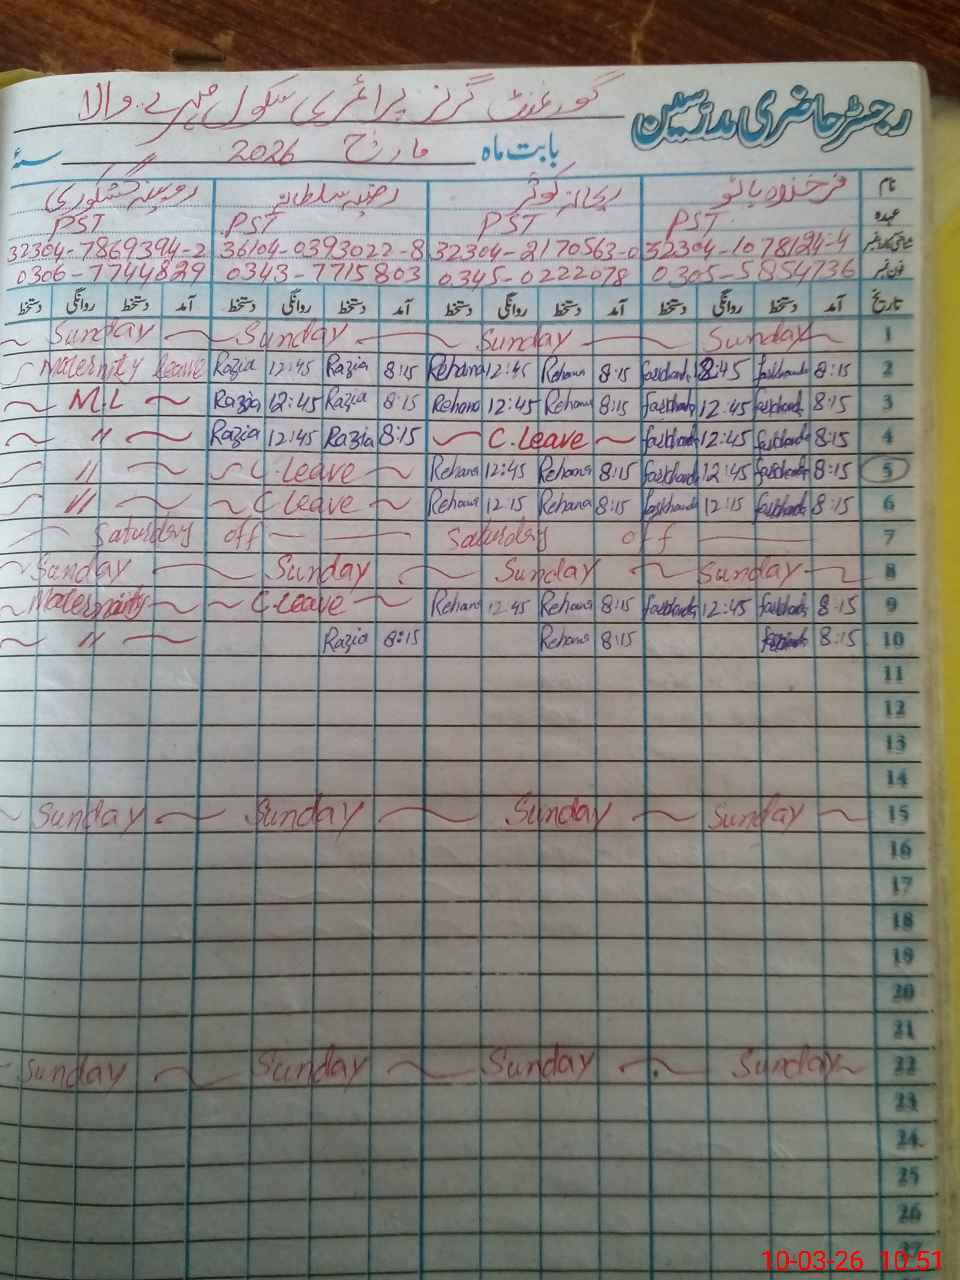 رجسٹر حاضری مدرسین
گورنمنٹ گرلز پرائمری سکول مہرے والا
بابت ماہ مارچ 2026 سنۂ
نام فرخندہ بانو ریحانہ کوثر رضیہ سلطانہ
عہدہ PST PST PST PST
شناختی کارڈ نمبر 32304-1078124-4 32304-2170563-0 36104-0393022-8 32304-7869394-2
فون نمبر 0305-5854736 0345-0222078 0343-7715803 0306-7744829
تاریخ آمد دستخط روانگی دستخط آمد دستخط روانگی دستخط آمد دستخط روانگی دستخط آمد دستخط روانگی دستخط
Sunday Sunday Sunday Sunday 1
Maternity leave Razia 12:45 Razia 8:15 Rehana 12:45 Rehana 8:15 farkhanda 12:45 farkhanda 8:15 2
M.L Razia 12:45 Razia 8:15 Rehana 12:45 Rehana 8:15 farkhanda 12:45 farkhanda 8:15 3
〃 Razia 12:45 Razia 8:15 C.Leave farkhanda 12:45 farkhanda 8:15 4
〃 C.Leave Rehana 12:45 Rehana 8:15 farkhanda 12:45 farkhanda 8:15 5
〃 C Leave Rehana 12:15 Rehana 8:15 farkhanda 12:15 farkhanda 8:15 6
Saturday off Saturday off 7
Sunday Sunday Sunday Sunday 8
Maternity C.Leave Rehana 12:45 Rehana 8:15 farkhanda 12:45 farkhanda 8:15 9
〃 Razia 8:15 Rehana 8:15 8:15 10
11
12
13
14
Sunday Sunday Sunday Sunday 15
16
17
18
19
20
21
Sunday Sunday Sunday Sunday 22
23
24
25
26
27
10-03-26 10:51